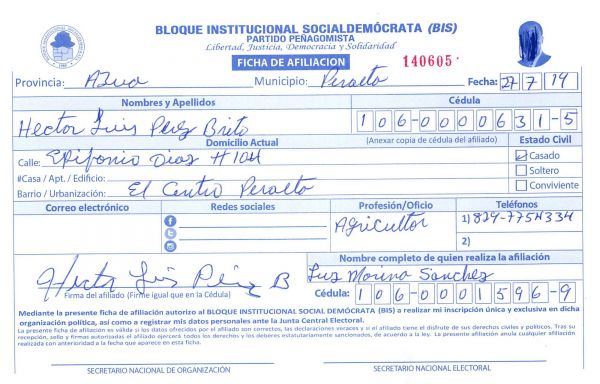 BLOQUE INSTITUCIONAL SOCIALDEMÓCRATA (BIS)
PARTIDO PEÑAGOMISTA
Libertad, Justicia, Democracia y Solidaridad
FICHA DE AFILIACION 140605
Provincia: Azua Municipio: Peralta Fecha: 27 7 19
Nombres y Apellidos Cédula
Hector Luis Perez Brito 106-0000631-5
Domicilio Actual (Anexar copia de cédula del afiliado) Estado Civil
Calle: Epifonio Dias #104 Casado
#Casa / Apt. / Edificio: Soltero
Barrio / Urbanización: El Centro Peralta Conviviente
Correo electrónico Redes sociales Profesión/Oficio Teléfonos
Agricultor 1) 829-7754334
2)
Nombre completo de quien realiza la afiliación
Hector Luis Perez B Luz Morina Sanchez
Firma del afiliado (Firme igual que en la Cédula) Cédula: 106-0001596-9
Mediante la presente ficha de afiliación autorizo al BLOQUE INSTITUCIONAL SOCIAL DEMÓCRATA (BIS) a realizar mi inscripción única y exclusiva en dicha
organización política, así como a registrar mis datos personales ante la Junta Central Electoral.
La presente ficha de afiliación es válida si los datos ofrecidos por el afiliado son correctos, las declaraciones veraces y si el afiliado tiene el disfrute de sus derechos civiles y politicos. Tras su
recepción, sello y firmas autorizadas el afiliado ejercerá todos los derechos y los deberes estatutariamente sancionados, de acuerdo a la ley. La presente afiliación anula cualquier afiliación
realizada con anterioridad a la fecha que aparece en esta ficha.
SECRETARIO NACIONAL DE ORGANIZACIÓN SECRETARIO NACIONAL ELECTORAL